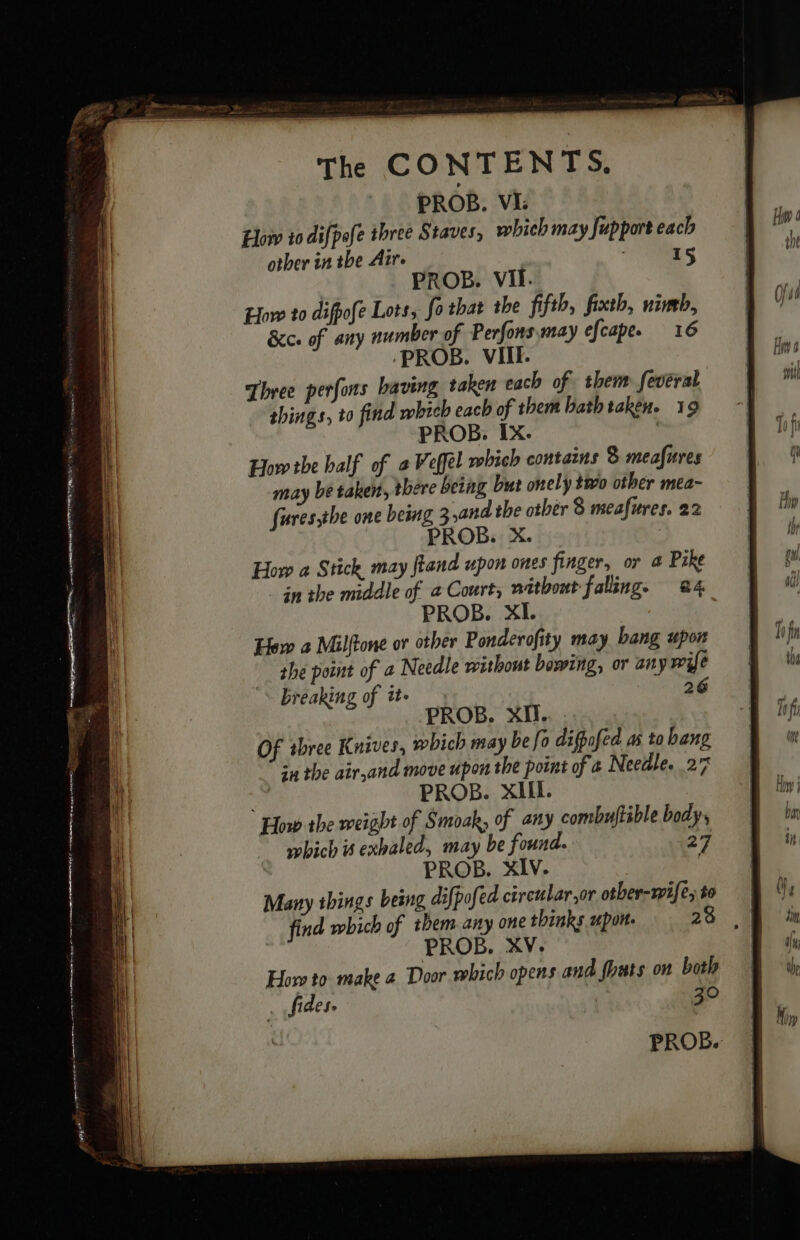 The CONTENTS.
PROB. VI.
How to diſpoſe three Staves, which may ſupport each
other in the Air. 15
PROB. VII.
How to diſpoſe Lots, ſo that the fifth, ſixth, ninth,
&c. of any number of Perſons may eſcape. 16
PROB. VIII.
Three perſons having taken each of them ſeveral
things, to find which each of them hath taken. 19
PROB. IX.
How the half of a Veſſel which contains 8 meaſures
may be taken, there being but onely two other mea-
ſures, the one being 3, and the other 8 meaſures. 22
PROB. X.
How a Stick may ſtand upon ones finger, or a Pike
in the middle of a Court, without falling. 24
PROB. XI.
How a Milſtone or other Ponderoſity may hang upon
the point of a Needle without bowing, or any wiſe
breaking of it. 26
PROB. XII.
Of three Knives, which may be ſo diſpoſed as to hang
in the air, and move upon the point of a Needle. 27
PROB. XIII.
How the weight of Smoak, of any combuſtible body,
which is exhaled, may be found. 27
PROB. XIV.
Many things being diſpoſed circular, or other-wiſe, to
find which of them any one thinks upon. 28
PROB. XV.
How to make a Door which opens and ſhuts on both
ſides. 30
PROB.